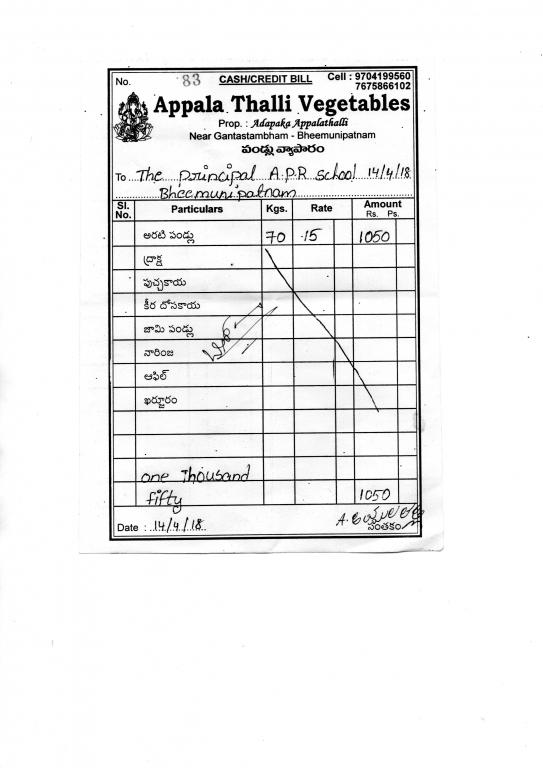 No. 83 CASH/CREDIT BILL Cell : 9704199560
7675866102
Appala Thalli Vegetables
Prop. : Adapaka Appalathalli
Near Gantastambham - Bheemunipatnam
పండ్లు వ్యాపారం
To The principal A.P.R school 14/4/18
Bheemunipatnam
Sl. No. Particulars Kgs. Rate Amount Rs. Ps.
అరటి పండ్లు 70 15 1050
ద్రాక్ష
పుచ్చకాయ
కీర దోసకాయ
జామి పండ్లు
నారింజ
ఆఫిల్
ఖర్జూరం
one Thousand
fifty 1050
Date : 14/4/18
సంతకం